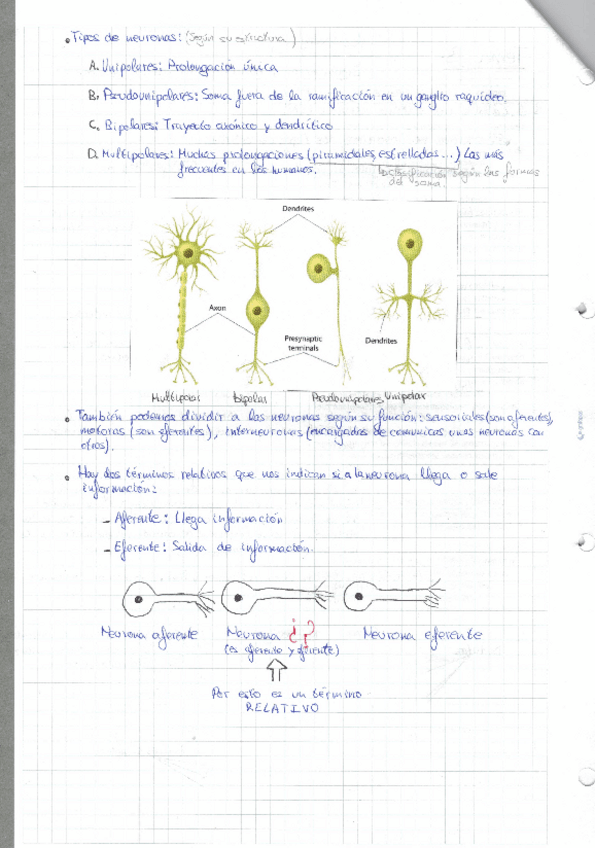 • Tipos de neuronas: (Según su estructura)
A. Unipolares: Prolongación única
B. Pseudounipolares: Soma fuera de la ramificación en un ganglio raquídeo.
C. Bipolares: Trayecto axónico y dendrítico
D. Multipolares: Muchas prolongaciones (piramidales, estrelladas...) Las más
frecuentes en los humanos.
clasificación según las formas
del soma.
Dendrites
Axon
Presynaptic
terminals
Dendrites
Multipolar bipolar Pseudounipolares Unipolar
• También podemos dividir a las neuronas según su función: sensoriales (son aferentes),
motoras (son eferentes), interneuronas (encargadas de comunicar unas neuronas con
otras).
• Hay dos términos relativos que nos indican si a la neurona llega o sale
información:
- Aferente: Llega información
- Eferente: Salida de información.
Neurona aferente Neurona ¿? Neurona eferente
(es aferente y eferente)
Por esto es un término
RELATIVO